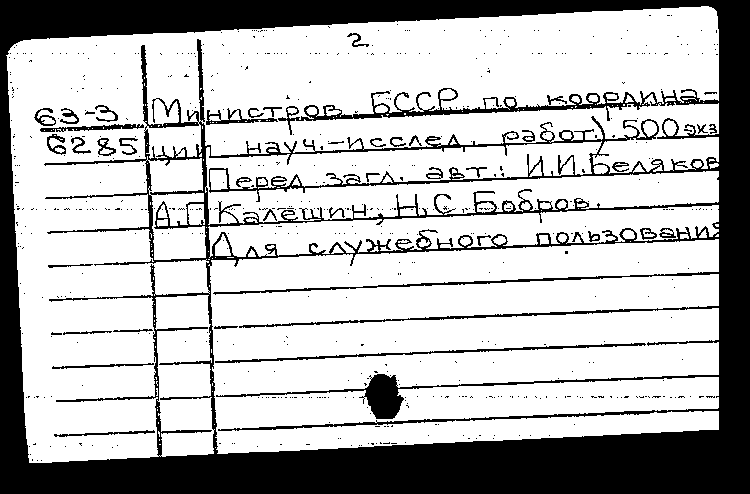 2
63-3 Министров БССР по координа-
6285 ции науч.-исслед. работ). 500 экз
Перед загл. авт.: И.И.Беляков
А.Г. Калешин, Н.С. Бобров.
Для служебного пользования